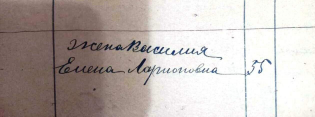 жена Василия
Елена Ларионовна 55